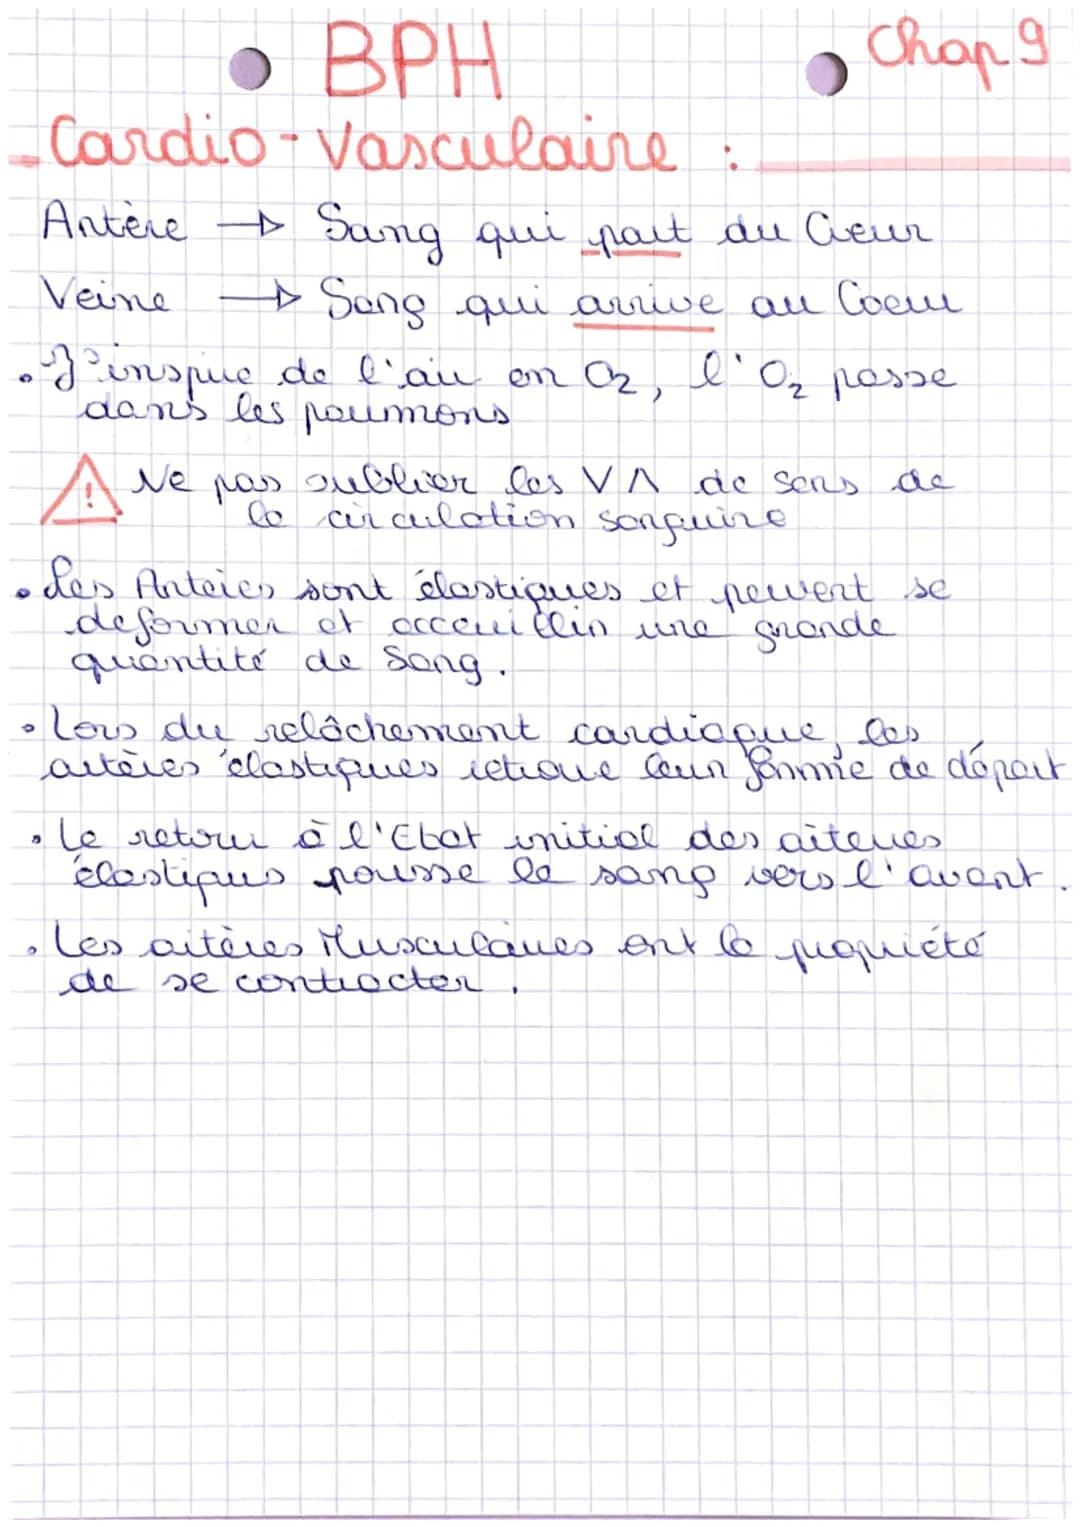 BPH
Chap 9
Cardio-Vasculaire :
Artère → Sang qui part du Coeur
Veine → Sang qui arrive au Coeur
• J'inspire de l'air en O₂, l'O₂ passe
dans les poumons
! Ne pas oublier les V Λ de sens de
la circulation sanguine
• Les Artères sont élastiques et peuvent se
deformer et acceuillir une grande
quantité de Sang.
• Lors du relâchement cardiaque, les
artères élastiques retrouve leur forme de départ
• Le retour à l'Etat initial des artères
élastiques pousse le sang vers l'avant.
• Les artères Musculaires ont la propriété
de se contracter.